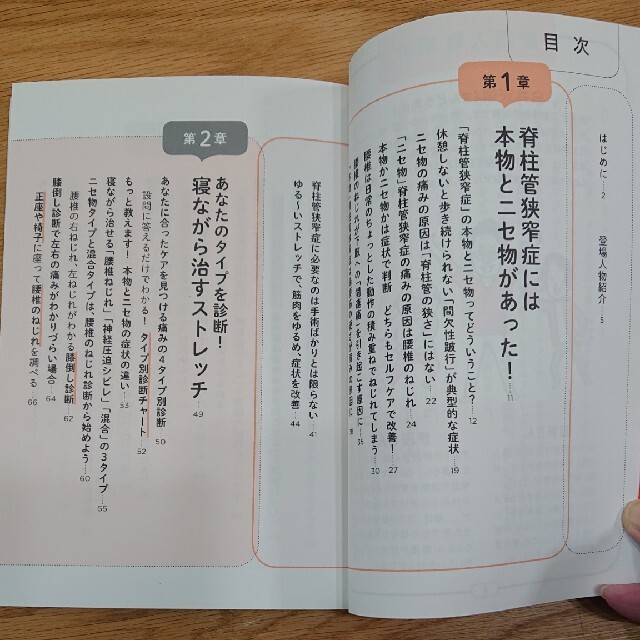 目次
はじめに…2
登場人物紹介…5
第1章
脊柱管狭窄症には
本物とニセ物があった!…11
「脊柱管狭窄症」の本物とニセ物ってどういうこと?…12
休憩しないと歩き続けられない「間欠性跛行」が典型的な症状…19
ニセ物の痛みの原因は「脊柱管の狭さ」にはない…22
「ニセ物」脊柱管狭窄症の痛みの原因は腰椎のねじれ…24
本物かニセ物かは症状で判断 どちらもセルフケアで改善!…27
腰椎は日常のちょっとした動作の積み重ねでねじれてしまう…30
脊柱管狭窄症に必要なのは手術ばかりとは限らない…41
ゆる〜いストレッチで、筋肉をゆるめ、症状を改善…44
第2章
あなたのタイプを診断!
寝ながら治すストレッチ…49
あなたに合ったケアを見つける痛みの4タイプ別診断…50
設問に答えるだけでわかる! タイプ別診断チャート…52
もっと教えます! 本物とニセ物の症状の違い…53
寝ながら治せる「腰椎ねじれ」「神経圧迫シビレ」「混合」の3タイプ…55
ニセ物タイプと混合タイプは、腰椎のねじれ診断から始めよう…60
腰椎の右ねじれ、左ねじれがわかる膝倒し診断…62
膝倒し診断で左右の痛みがわかりづらい場合…64
正座や椅子に座って腰椎のねじれを調べる…66